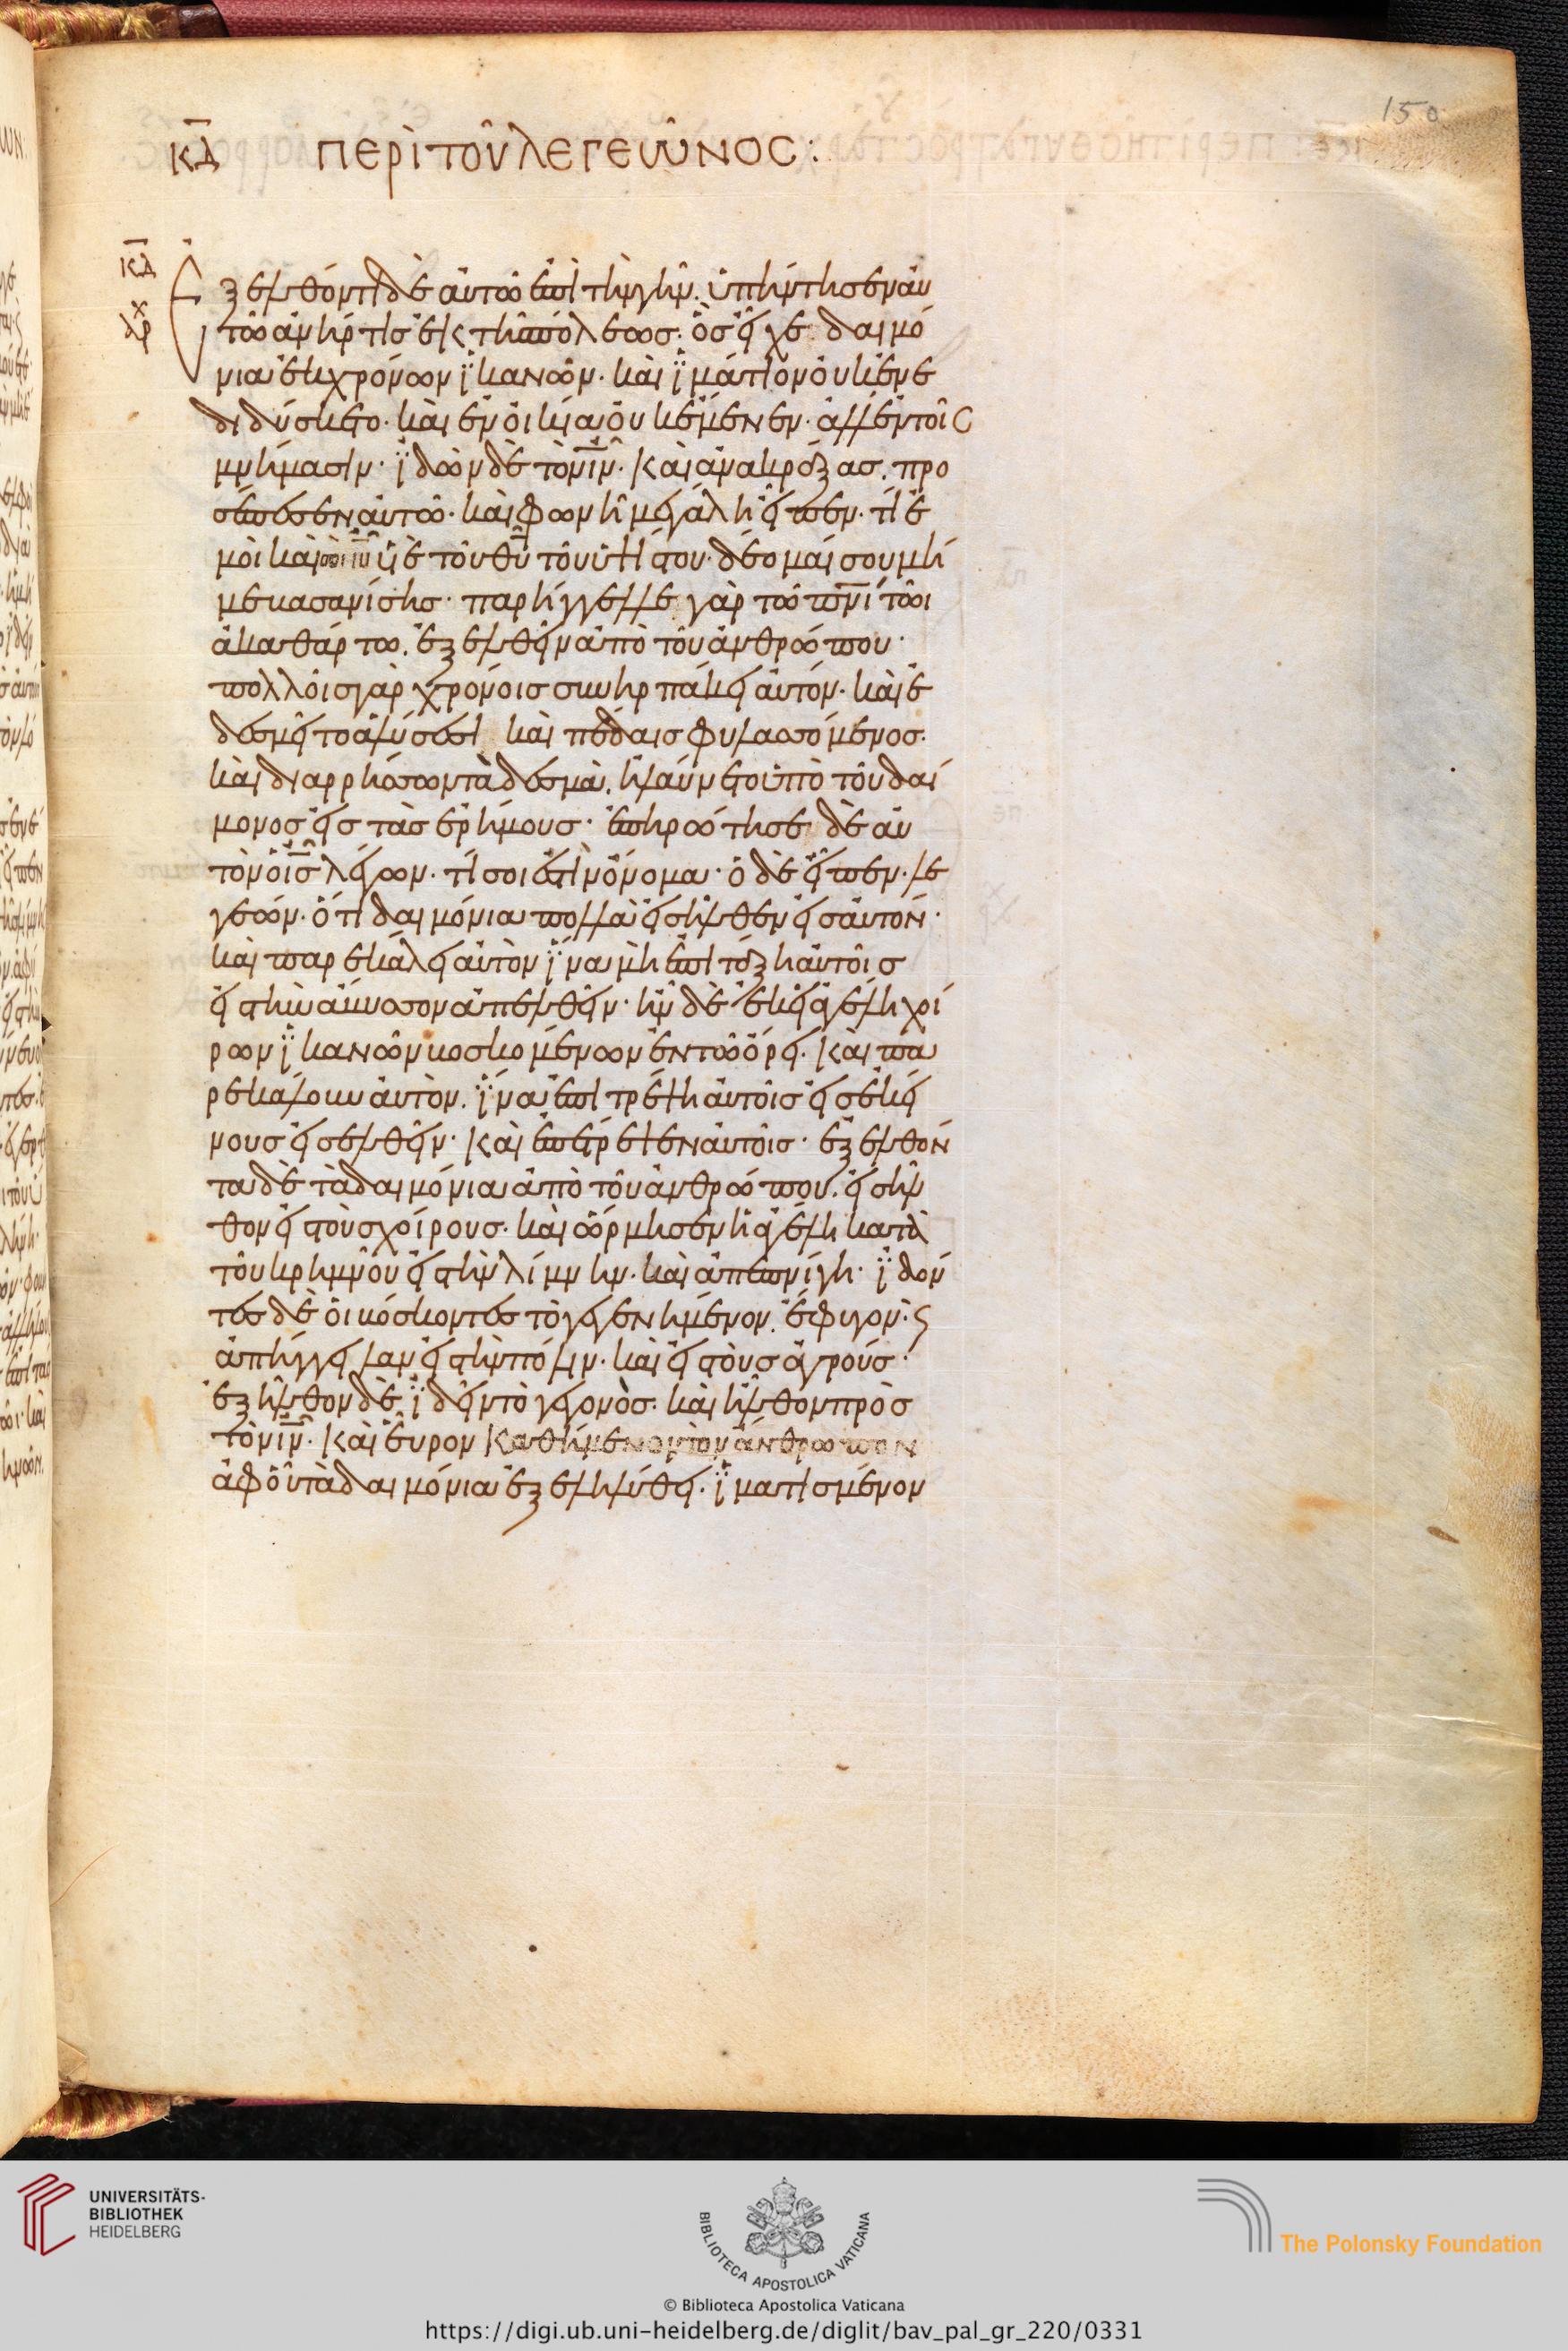 150
κδ περὶ τοῦ λεγεῶνος:
κδ
ἐξελθόντι δὲ αὐτῶ ἐπὶ τὴν γῆν. ὑπήντησεν αὐ
τῶ ἀνήρ τις ἐκ τῆς πόλεως. ὃς εἶχε δαιμό
νια ἐκ χρόνων ϊκανῶν. καὶ ϊμάτιον οὐκ ἐνε
διδύσκετο. καὶ ἐν οἰκία οὐκ ἔμενεν. ἀλλ' ἐν τοῖς
μνήμασιν. ϊδὼν δὲ τὸν ιν. καὶ ἀνακράξας. προ
σέπεσεν αὐτῶ. καὶ φωνῆ μεγάλη εἶπεν. τί ἐ
μοὶ καὶ σοὶ ιυ υἱὲ τοῦ θυ τοῦ ὑψίστου. δέομαί σου μή
με βασανίσης. παρήγγελλε γὰρ τῶ πνι τῶι
ἀκαθάρτω. ἐξελθεῖν ἀπὸ τοῦ ἀνθρώπου.
πολλοῖς γὰρ χρόνοις συνηρπάκει αὐτόν. καὶ ἐ
δεσμεῖτο ἁλύσεσι καὶ πέδαις φυλασσόμενος.
καὶ διαρρήσσων τὰ δεσμὰ. ἠλαύνετο ὑπὸ τοῦ δαί
μονος εἰς τὰς ἐρήμους. ἐπηρώτησε δὲ αὐ
τὸν ὁ ις λέγων. τί σοι ἐστὶν ὄνομα. ὁ δὲ εἶπεν. λε
γεών. ὅτι δαιμόνια πολλὰ εἰσῆλθεν εἰς αὐτόν.
καὶ παρεκάλει αὐτὸν ϊνα μὴ ἐπιτάξη αὐτοῖς
εἰς τὴν ἄβυσσον ἀπελθεῖν. ἦν δὲ ἐκεῖ ἀγέλη χοί
ρων ϊκανῶν βοσκομένων ἐν τῶ ὄρει. καὶ πα
ρεκάλουν αὐτὸν. ϊνα ἐπιτρέψη αὐτοῖς εἰς ἐκεί
νους εἰσελθεῖν. καὶ ἐπέτρεψεν αὐτοῖς. ἐξελθόν
τα δὲ τὰ δαιμόνια ἀπὸ τοῦ ἀνθρώπου. εἰσῆλ
θον εἰς τοὺς χοίρους. καὶ ὥρμησεν ἡ ἀγέλη κατὰ
τοῦ κρημνοῦ εἰς τὴν λίμνην. καὶ ἀπεπνίγη. ϊδόν
τες δὲ οἱ βόσκοντες τὸ γεγενημένον. ἔφυγον. ϛ
ἀπήγγειλαν εἰς τὴν πόλιν. καὶ εἰς τοὺς ἀγρούς.
ἐξῆλθον δὲ ϊδεῖν τὸ γεγονὸς. καὶ ἦλθον πρὸς
τὸν ιν. καὶ εὗρον καθήμενον τὸν ἄνθρωπον
ἀφ' οὗ τὰ δαιμόνια ἐξεληλύθει. ϊματισμένον
UNIVERSITÄTS-
BIBLIOTHEK
HEIDELBERG
BIBLIOTECA APOSTOLICA VATICANA
The Polonsky Foundation
© Biblioteca Apostolica Vaticana
https://digi.ub.uni-heidelberg.de/diglit/bav_pal_gr_220/0331